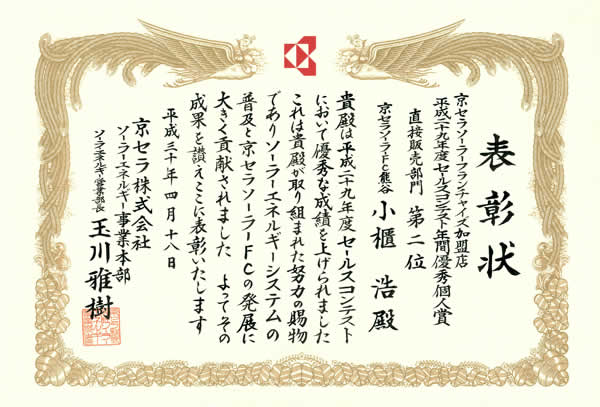 表彰状
京セラソーラーフランチャイズ加盟店
平成二十九年度セールスコンテスト年間優秀個人賞
直接販売部門 第二位
京セラソーラーFC熊谷 小櫃 浩 殿
貴殿は平成二十九年度セールスコンテスト
において優秀な成績を上げられました
これは貴殿が取り組まれた努力の賜物
でありソーラーエネルギーシステムの
普及と京セラソーラーFCの発展に
大きく貢献されました よってその
成果を讃えここに表彰いたします
平成三十年四月十八日
京セラ株式会社
ソーラーエネルギー事業本部
ソーラーエネルギー営業部長 玉川雅樹